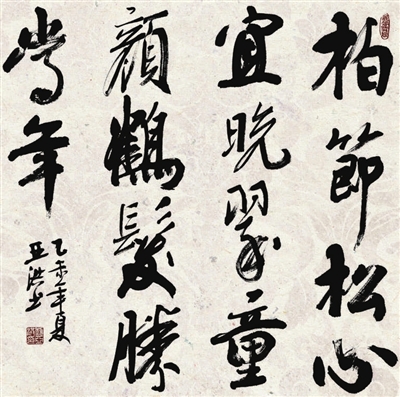 柏節松心
宜晚翠童
顏鶴髮勝
當年
乙未年夏
亞洪書